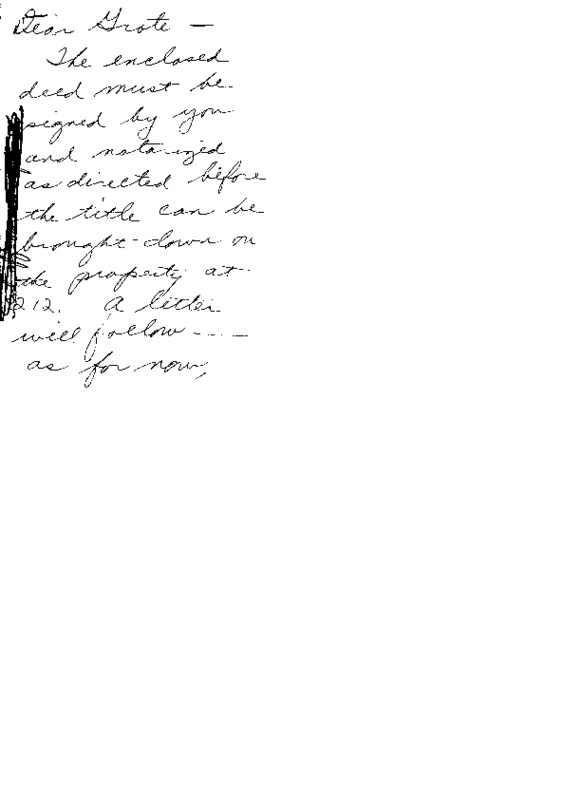 Dear Grote —
The enclosed
deed must be
signed by you
and notarized
as directed before
the title can be
brought down on
the property at
212. A letter
will follow ----
as for now,